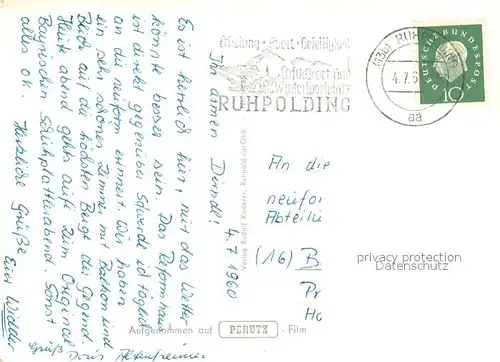 Ihr armen Dirndl!
4.7.1960
Es ist herrlich hier, nur das Wetter
könnte besser sein. Das Reformhaus
ist direkt gegenüber sodaß ich täglich
an die neuform erinnert. Wir haben
ein sehr schönes Zimmer mit Balkon und
Blick auf die höchsten Berge der Gegend.
Heut abend gehts auf zum Original
Bayrischen Schuhplattlerabend. Sonst
alles ok. Herzliche Grüße
Eure
Gruß Doris
Erholung · Sport · Geselligkeit
Luftkurort und
Wintersportplatz
RUHPOLDING
(13b) RUHPOLDING
4.7.6
aa
DEUTSCHE BUNDESPOST
10
Verlag Rudolf Koderer, Ruhpolding/Obb.
An die
neufor
Abteilu
(16) B
Pr
Ho
privacy protection
Datenschutz
Aufgenommen auf PERUTZ - Film